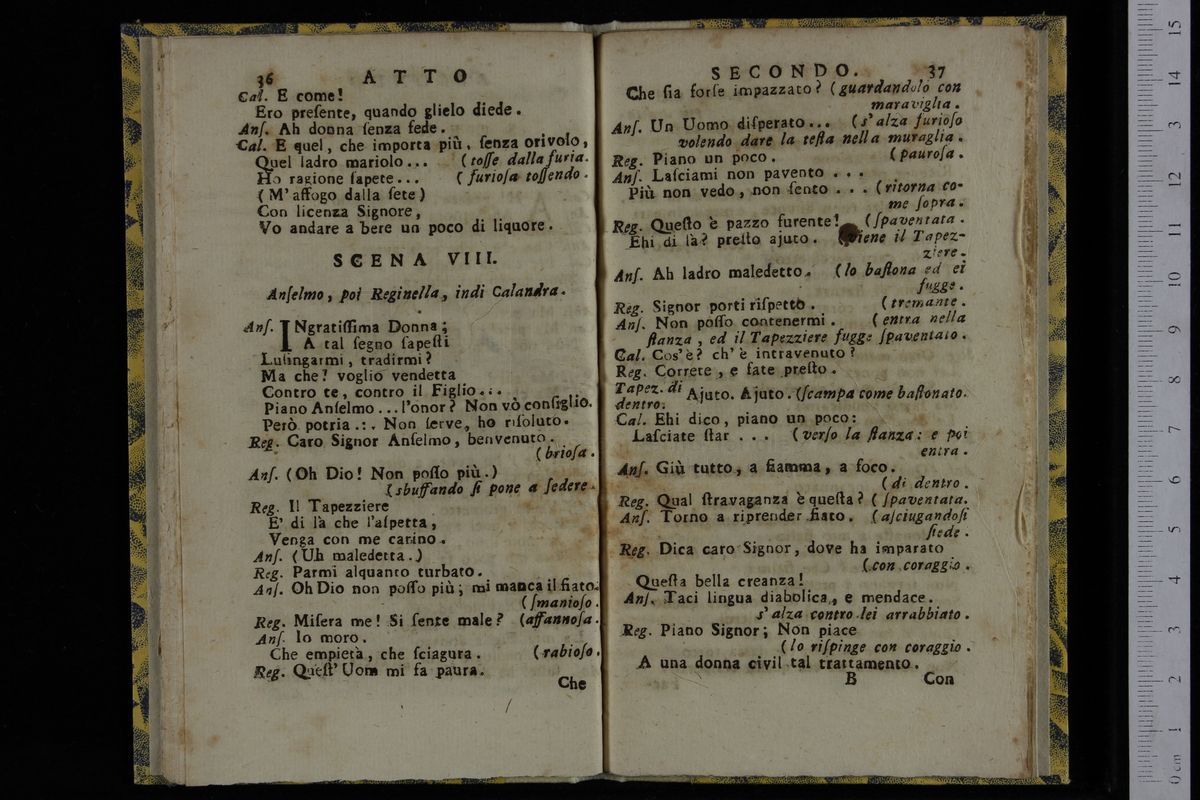 36 ATTO
Cal. E come!
Ero preſente, quando glielo diede.
Anſ. Ah donna ſenza fede.
Cal. E quel, che importa più, ſenza orivolo,
Quel ladro mariolo... (toſſe dalla furia.
Ho ragione ſapete... (furioſa toſſendo.
(M'affogo dalla ſete)
Con licenza Signore,
Vo andare a bere un poco di liquore.
SCENA VIII.
Anſelmo, poi Reginella, indi Calandra.
Anſ. INgratiſſima Donna;
A tal ſegno ſapeſti
Luſingarmi, tradirmi?
Ma che? voglio vendetta
Contro te, contro il Figlio...
Piano Anſelmo... l'onor? Non vò conſiglio.
Però potria .:. Non ſerve, ho riſoluto.
Reg. Caro Signor Anſelmo, benvenuto.
(brioſa.
Anſ. (Oh Dio! Non poſſo più.)
(sbuffando ſi pone a ſedere.
Reg. Il Tapezziere
E' di là che l'aſpetta,
Venga con me carino.
Anſ. (Uh maledetta.)
Reg. Parmi alquanto turbato.
Anſ. Oh Dio non poſſo più; mi manca il fiato.
(ſmanioſo.
Reg. Miſera me! Si ſente male? (affannoſa.
Anſ. Io moro.
Che empietà, che ſciagura. (rabioſo.
Reg. Queſt'Uom mi fa paura.
Che
SECONDO. 37
Che ſia forſe impazzato? (guardandolo con
maraviglia.
Anſ. Un Uomo diſperato... (s'alza furioſo
volendo dare la teſta nella muraglia.
Reg. Piano un poco. (pauroſa.
Anſ. Laſciami non pavento ...
Più non vedo, non ſento ... (ritorna co-
me ſopra.
Reg. Queſto è pazzo furente! (ſpaventata.
Ehi di là? preſto ajuto. (viene il Tapez-
ziere.
Anſ. Ah ladro maledetto. (lo baſtona ed ei
fugge.
Reg. Signor porti riſpetto. (tremante.
Anſ. Non poſſo contenermi. (entra nella
ſtanza, ed il Tapezziere fugge ſpaventato.
Cal. Cos'è? ch'è intravenuto?
Reg. Correte, e fate preſto.
Tapez. di
dentro. Ajuto. Ajuto. (ſcampa come baſtonato.
Cal. Ehi dico, piano un poco:
Laſciate ſtar ... (verſo la ſtanza: e poi
entra.
Anſ. Giù tutto, a fiamma, a foco.
(di dentro.
Reg. Qual ſtravaganza è queſta? (ſpaventata.
Anſ. Torno a riprender fiato. (aſciugandoſi
ſiede.
Reg. Dica caro Signor, dove ha imparato
(con coraggio.
Queſta bella creanza!
Anſ. Taci lingua diabolica, e mendace.
s'alza contro lei arrabbiato.
Reg. Piano Signor; Non piace
(lo riſpinge con coraggio.
A una donna civil tal trattamento.
B Con
15
14
13
12
11
10
9
8
7
6
5
4
3
2
1
0 cm